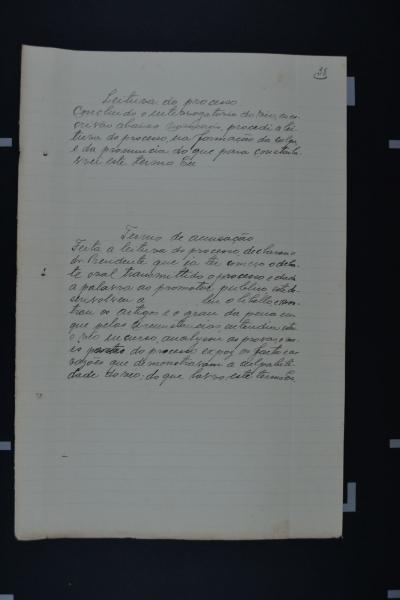 28
Leitura do processo
Concluido o interrogatorio do réo, eu es-
crivão abaixo procedi a lei-
tura do processo na formação da culpa
e da pronuncia do que para constar la-
vrei este termo Eu
Termo de accusação
Feita a leitura do processo, declarou o
Dr Presidente que ia ter começo o deba-
te oral, transmittido o processo e dada
a palavra ao promotor publico, este de-
senvolveu a leu o libello, mos-
trou os artigos e o grau da pena em
que pelas circumstancias, entendia estar
o réo incurso, analysou as provas, o
do processo, expoz os factos e as
razões que demonstravam a culpabili-
dade do réo; do que lavro este termo Eu